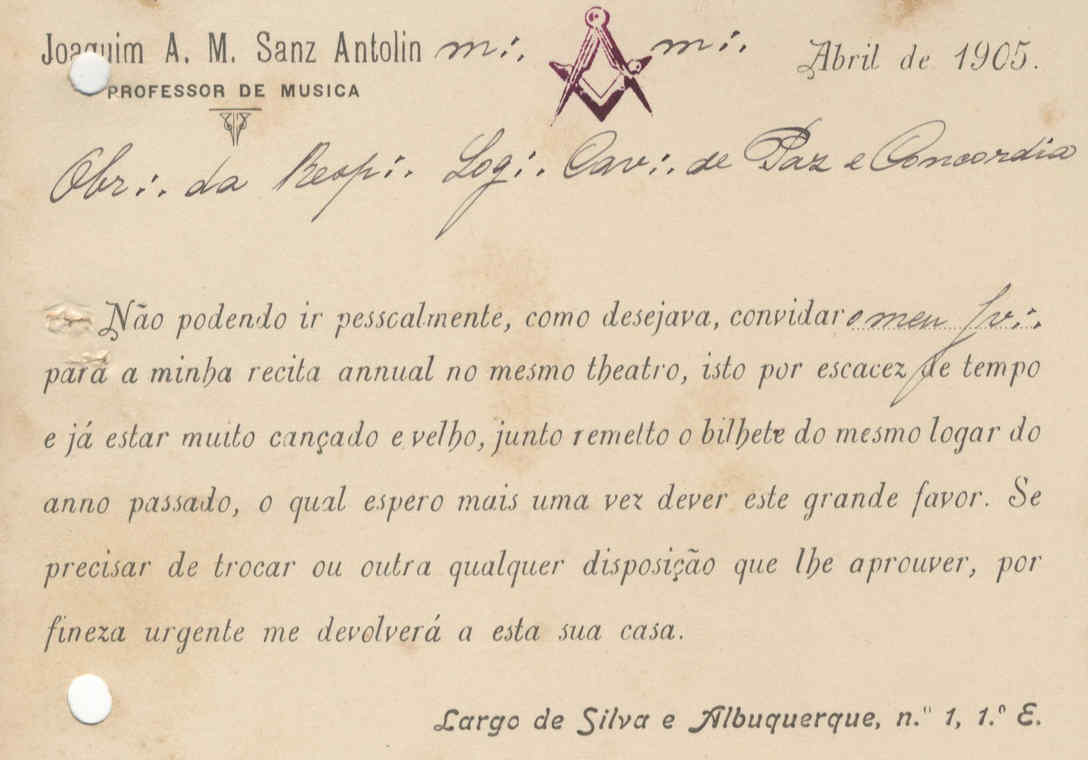 Joaquim A. M. Sanz Antolin m∴ m∴ Abril de 1905.
PROFESSOR DE MUSICA
Obr∴ da Resp∴ Log∴ Cav∴ de Paz e Concordia
Não podendo ir pesscalmente, como desejava, convidar o meu Ir∴
pará a minha recita annual no mesmo theatro, isto por escacez de tempo
e já estar muito cançado e velho, junto remetto o bilhete do mesmo logar do
anno passado, o qual espero mais uma vez dever este grande favor. Se
precisar de trocar ou outra qualquer disposição que lhe aprouver, por
fineza urgente me devolverá a esta sua casa.
Largo de Silva e Albuquerque, n.º 1, 1.º E.